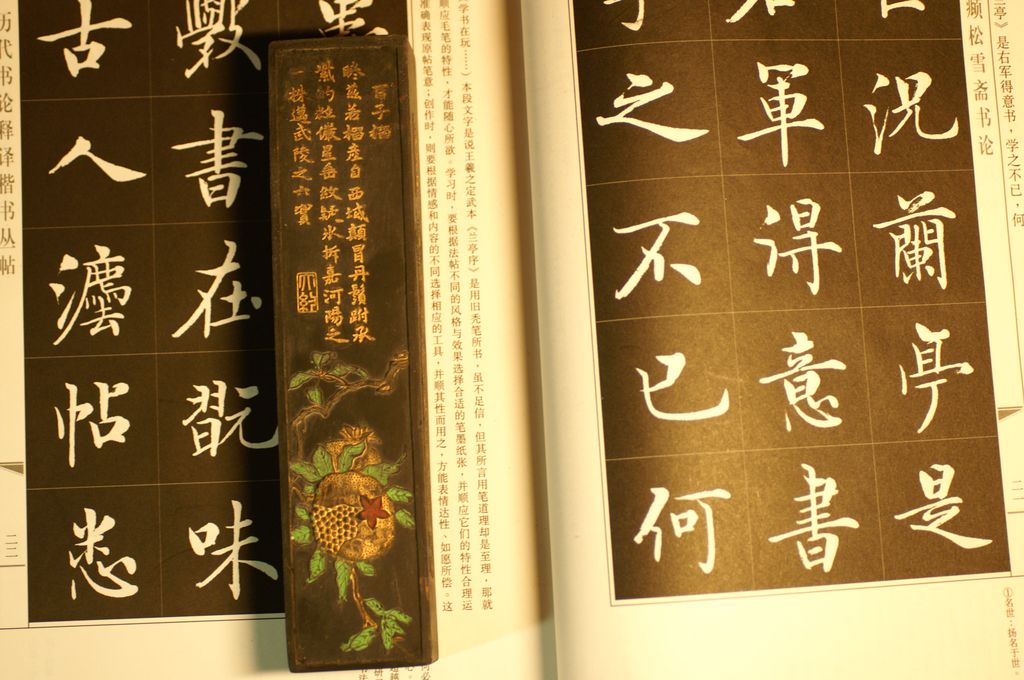 亭》是右军得意书，学之不已，何
松雪斋书论
①名世：扬名于世。
况蘭亭是
軍得意書
之不已何
学书在玩……）本段文字是说王羲之定武本《兰亭序》是用旧秃笔所书，虽不足信，但其所言用笔道理却是至理，那就
顺应毛笔的特性，才能随心所欲。学习时，要根据法帖不同的风格与效果选择合适的笔墨纸张，并顺应它们的特性合理运
准确表现原帖笔意；创作时，则要根据情感和内容的不同选择相应的工具，并顺其性而用之，方能表情达性、如愿所偿。这
百子榴
茲若榴產自西域顛冒丹鬚跗承
的粒儼星垂紋疑冰拆嘉河陽之
一邁武陵之六實
書在翫味
古人灋帖悉
历代书论释译楷书丛帖
二二